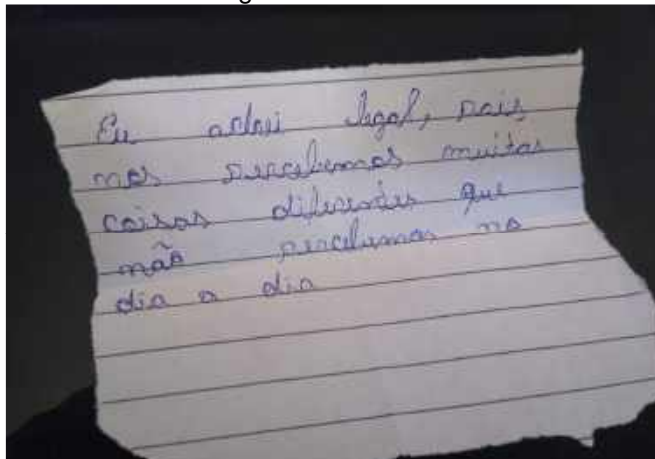 Eu achei legal, pois
nos percebemos muitas
coisas diferentes que
não percebemos no
dia a dia